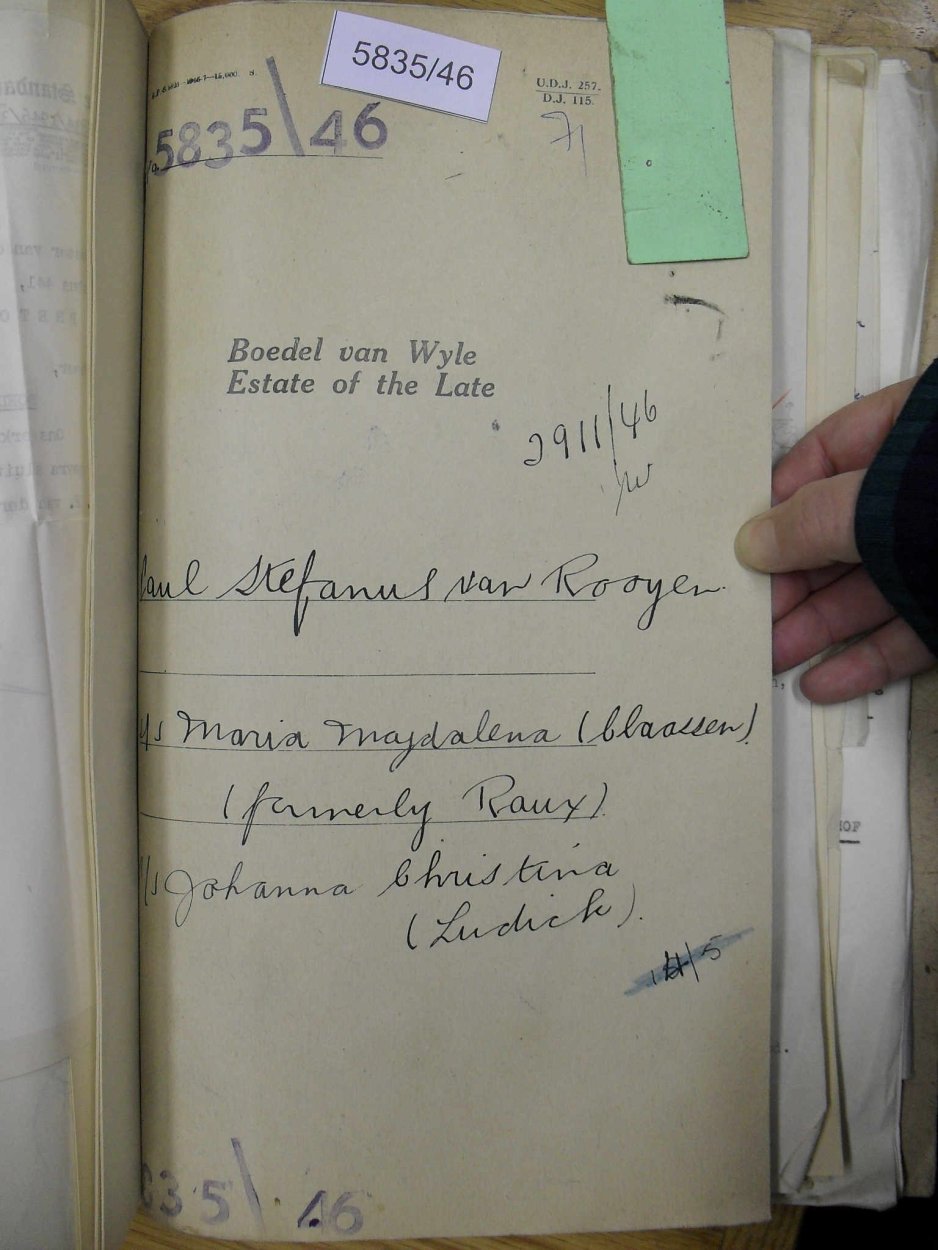 5835/46
U.D.J. 257.
D.J. 115.
5835\46
Boedel van Wyle
Estate of the Late
2911/46
Paul Stefanus van Rooyen
Maria Magdalena (Claassen)
(formerly Raux)
Johanna Christina
(Ludick).
35\46